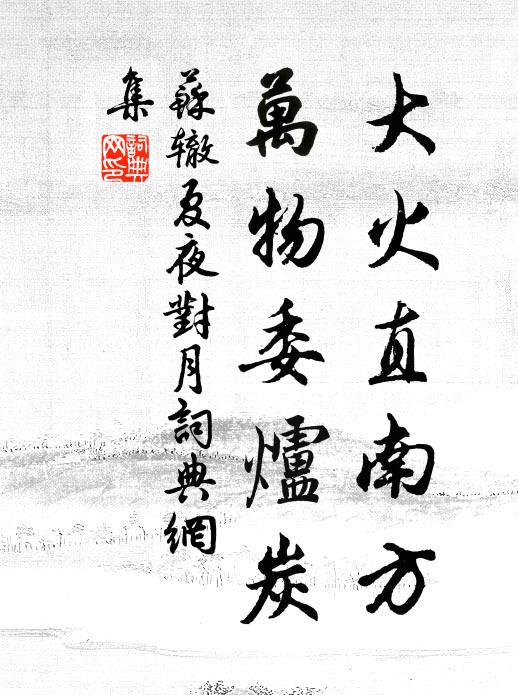 大火直南方
萬物委爐炭
蘇辙夏夜對月詞典網
集
詞典
网印